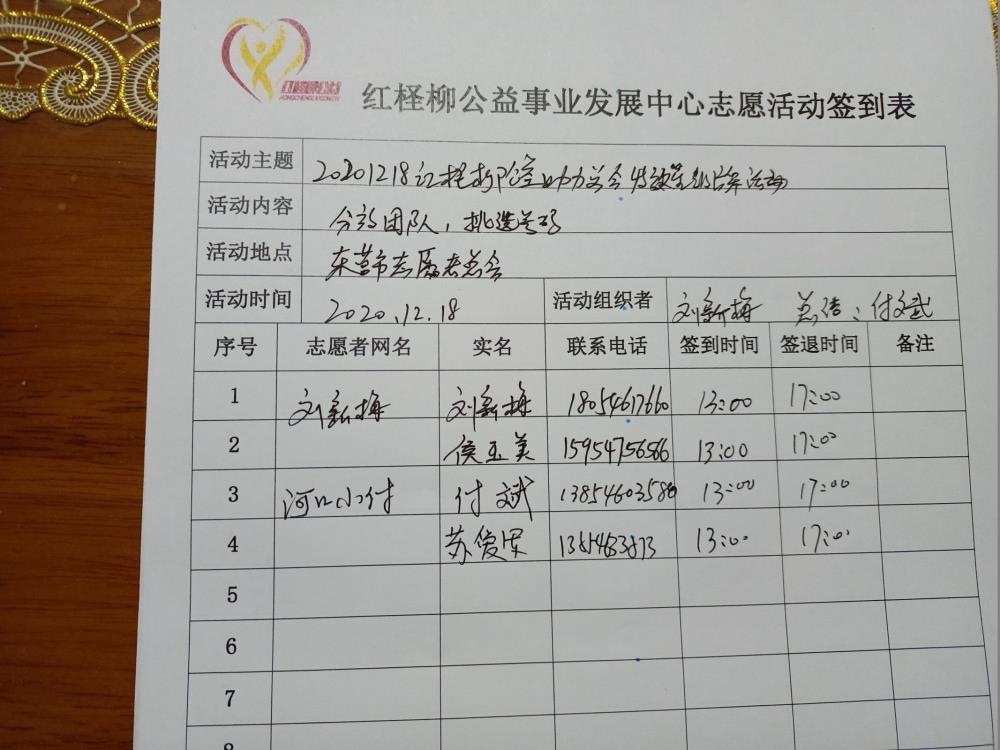 红柽柳公益事业发展中心志愿活动签到表
活动主题 20201218红柽柳 助力总会 活动
活动内容 分 团队，挑选号码
活动地点 东营市志愿者总会
活动时间 2020.12.18 活动组织者 刘新梅 总结：付文斌
序号 志愿者网名 实名 联系电话 签到时间 签退时间 备注
1 刘新梅 刘新梅 18054617660 13:00 17:00
2 侯玉美 15954756566 13:00 17:00
3 河口小付 付文斌 13854603580 13:00 17:00
4 苏俊 13:00 17:00
5
6
7
8